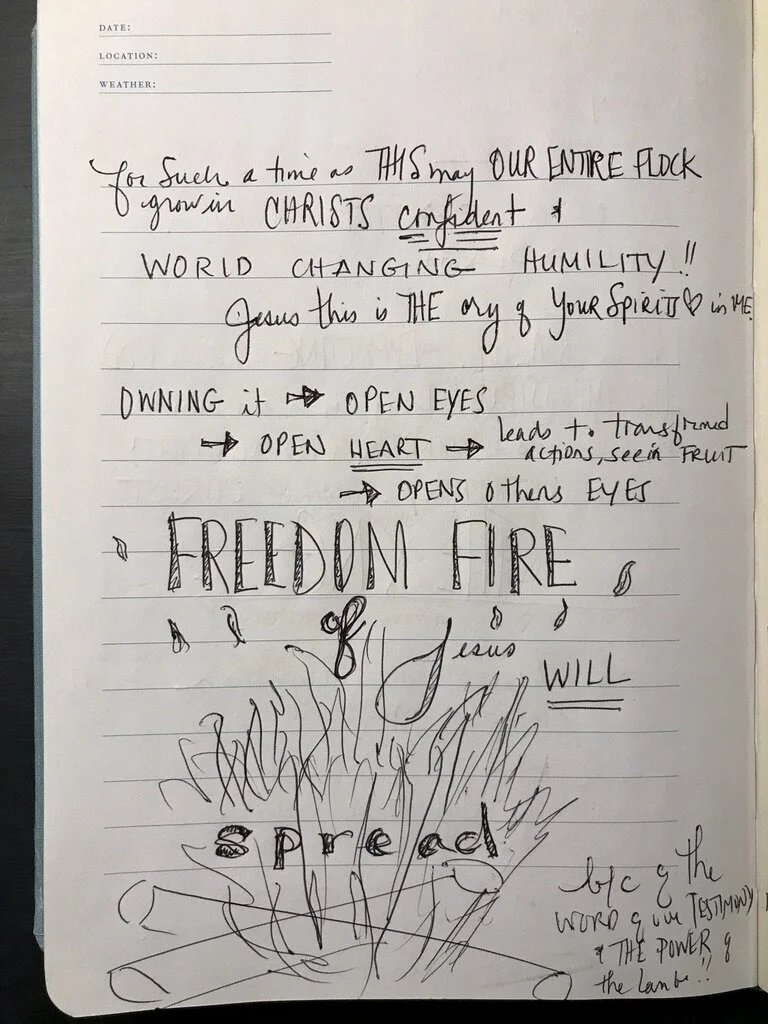 DATE:
LOCATION:
WEATHER:
for Such a time as THIS may OUR ENTIRE FLOCK
grow in CHRISTS confident &
WORLD CHANGING HUMILITY!!
Jesus this is THE cry of YOUR SPIRITS♡ in ME
OWNING it → OPEN EYES
→ OPEN HEART → leads to transformed
actions, see in FRUIT
→ OPENS others EYES
FREEDOM FIRE
of Jesus
WILL
spread
b/c of the
WORD of our TESTIMONY
& THE POWER of
the Lamb!!